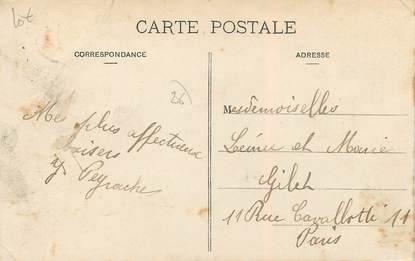 Lot
CARTE POSTALE
CORRESPONDANCE
ADRESSE
26
Mes plus affectueux
baisers
Y Peyrache
Mesdemoiselles
Léonie et Marie
Gilet
11 Rue Cavallotti 11
Paris